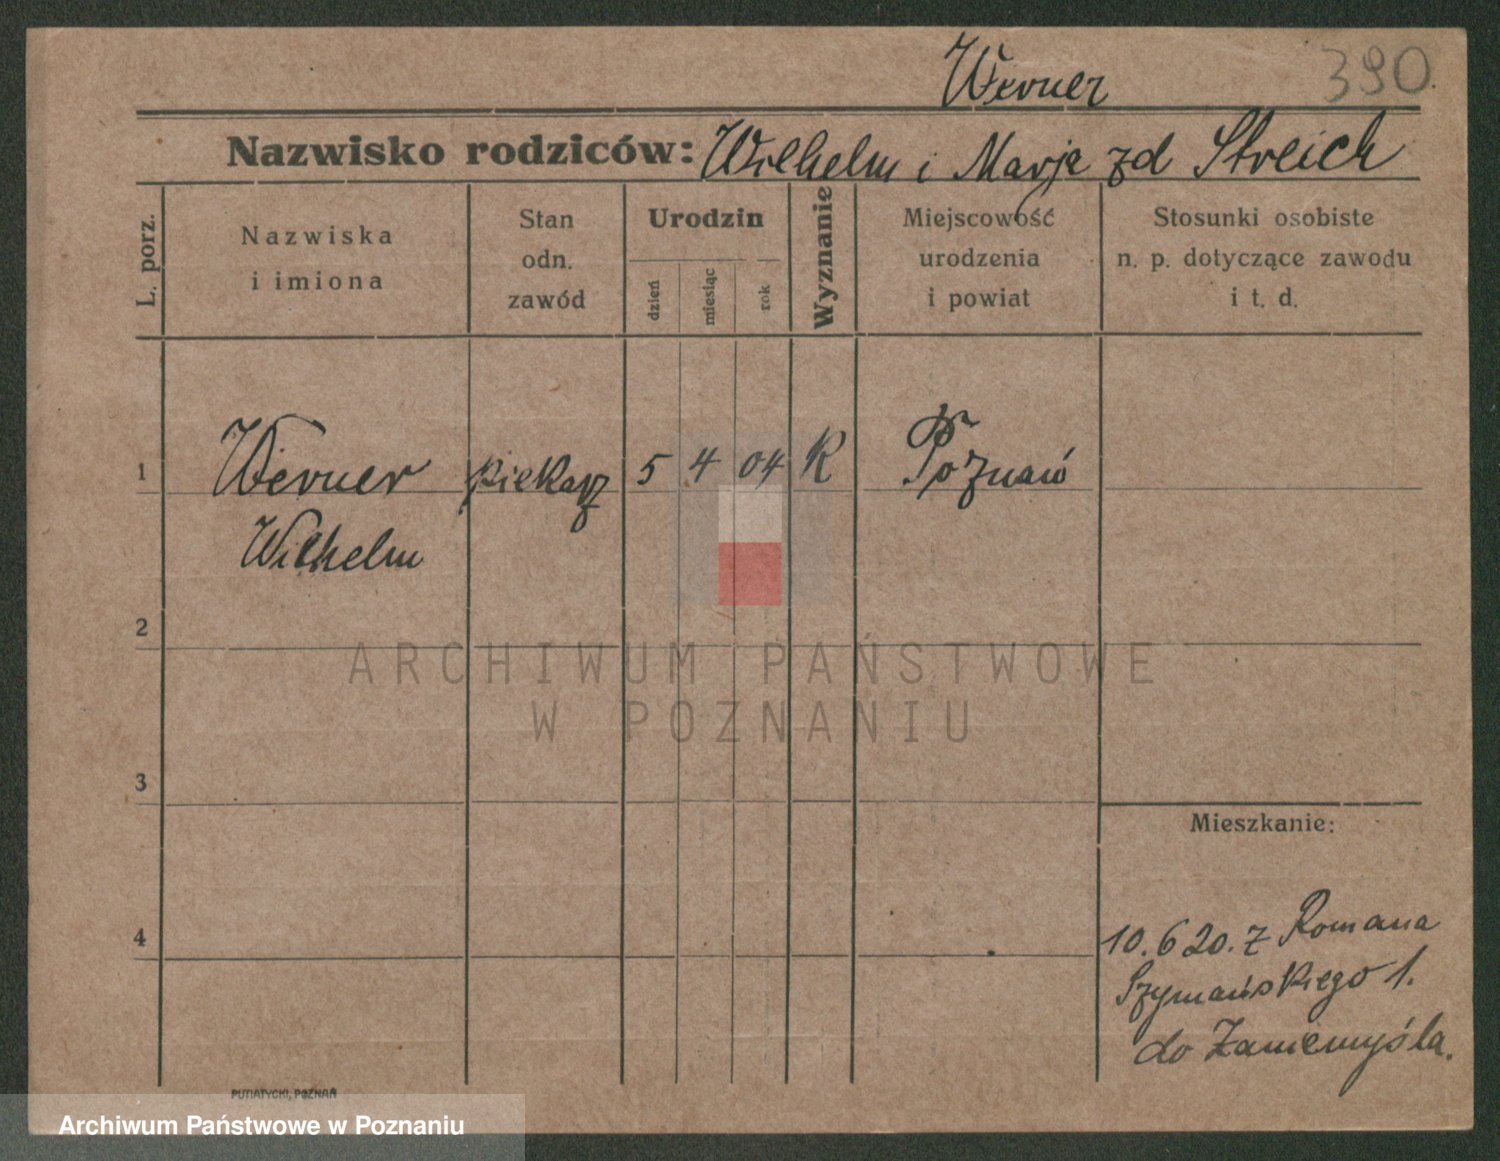 Werner 390.
Nazwisko rodziców: Wilhelm i Marje zd Streich
L. porz.
Nazwiska
i imiona
Stan
odn.
zawód
Urodzin
dzień
miesiąc
rok
Wyznanie
Miejscowość
urodzenia
i powiat
Stosunki osobiste
n. p. dotyczące zawodu
i t. d.
1 Werner piekarz 5 4 04 K Poznań
Wilhelm
2
3
4
Mieszkanie:
10.6 20. z Romana
Szymańskiego 1.
do Zaniemyśla.
ARCHIWUM PAŃSTWOWE
W POZNANIU
PUTIATYCKI, POZNAŃ
Archiwum Państwowe w Poznaniu